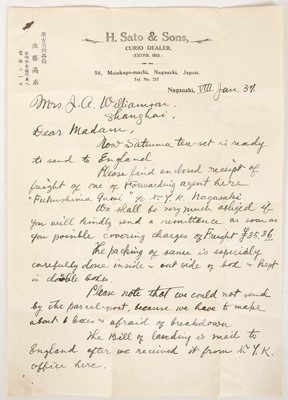 H. Sato & Sons,
CURIO DEALER,
56, Motokago-machi, Nagasaki, Japan.
Tel. No. 217
Nagasaki, VIII Jan. 37.
Mrs. J. A. Williamson,
Shanghai,
Dear Madam,
Now Satsuma tea-set is ready
to send to England
Please find enclosed receipt of
freight of one of Forwarding agent here
"Fukushima Gumi" to N.Y.K. Nagasaki
We shall be very much obliged if
you will kindly send a remittance as soon as
you possible covering charges of Freight ¥35.36
The packing of same is especialy
carefully done inside - out side of box & kept
in double boxes
Please note that we could not send
by the parcel-post, because we have to make
about 6 boxes & afraid of breakdown
The Bill of landing is mail to
England after we received it from N.Y.K.
office here.